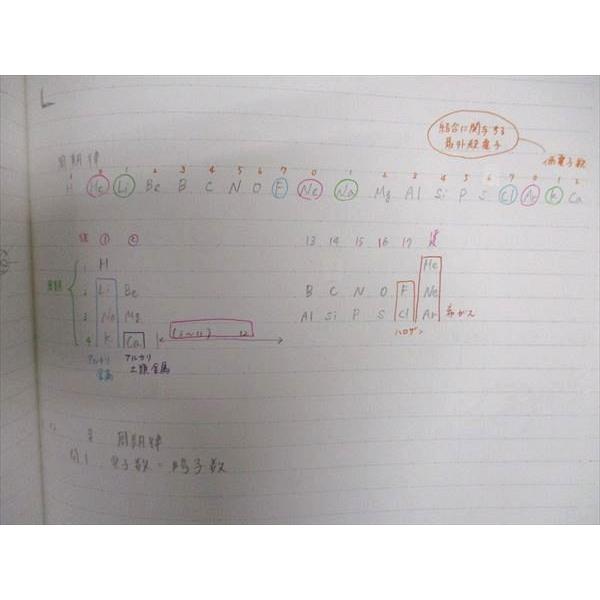 結合に関与する
最外殻電子
価電子数
周期律
1 0 1 2 3 4 5 6 7 0 1 2 3 4 5 6 7 0 1 2
H He Li Be B C N O F Ne Na Mg Al Si P S Cl Ar K Ca
族 1 2 13 14 15 16 17 18族
周期
1 H He
2 Li Be B C N O F Ne
3 Na Mg Al Si P S Cl Ar 希ガス
4 K Ca 12
ハロゲン
アルカリ金属
アルカリ土類金属
周期律
問1 電子数=陽子数